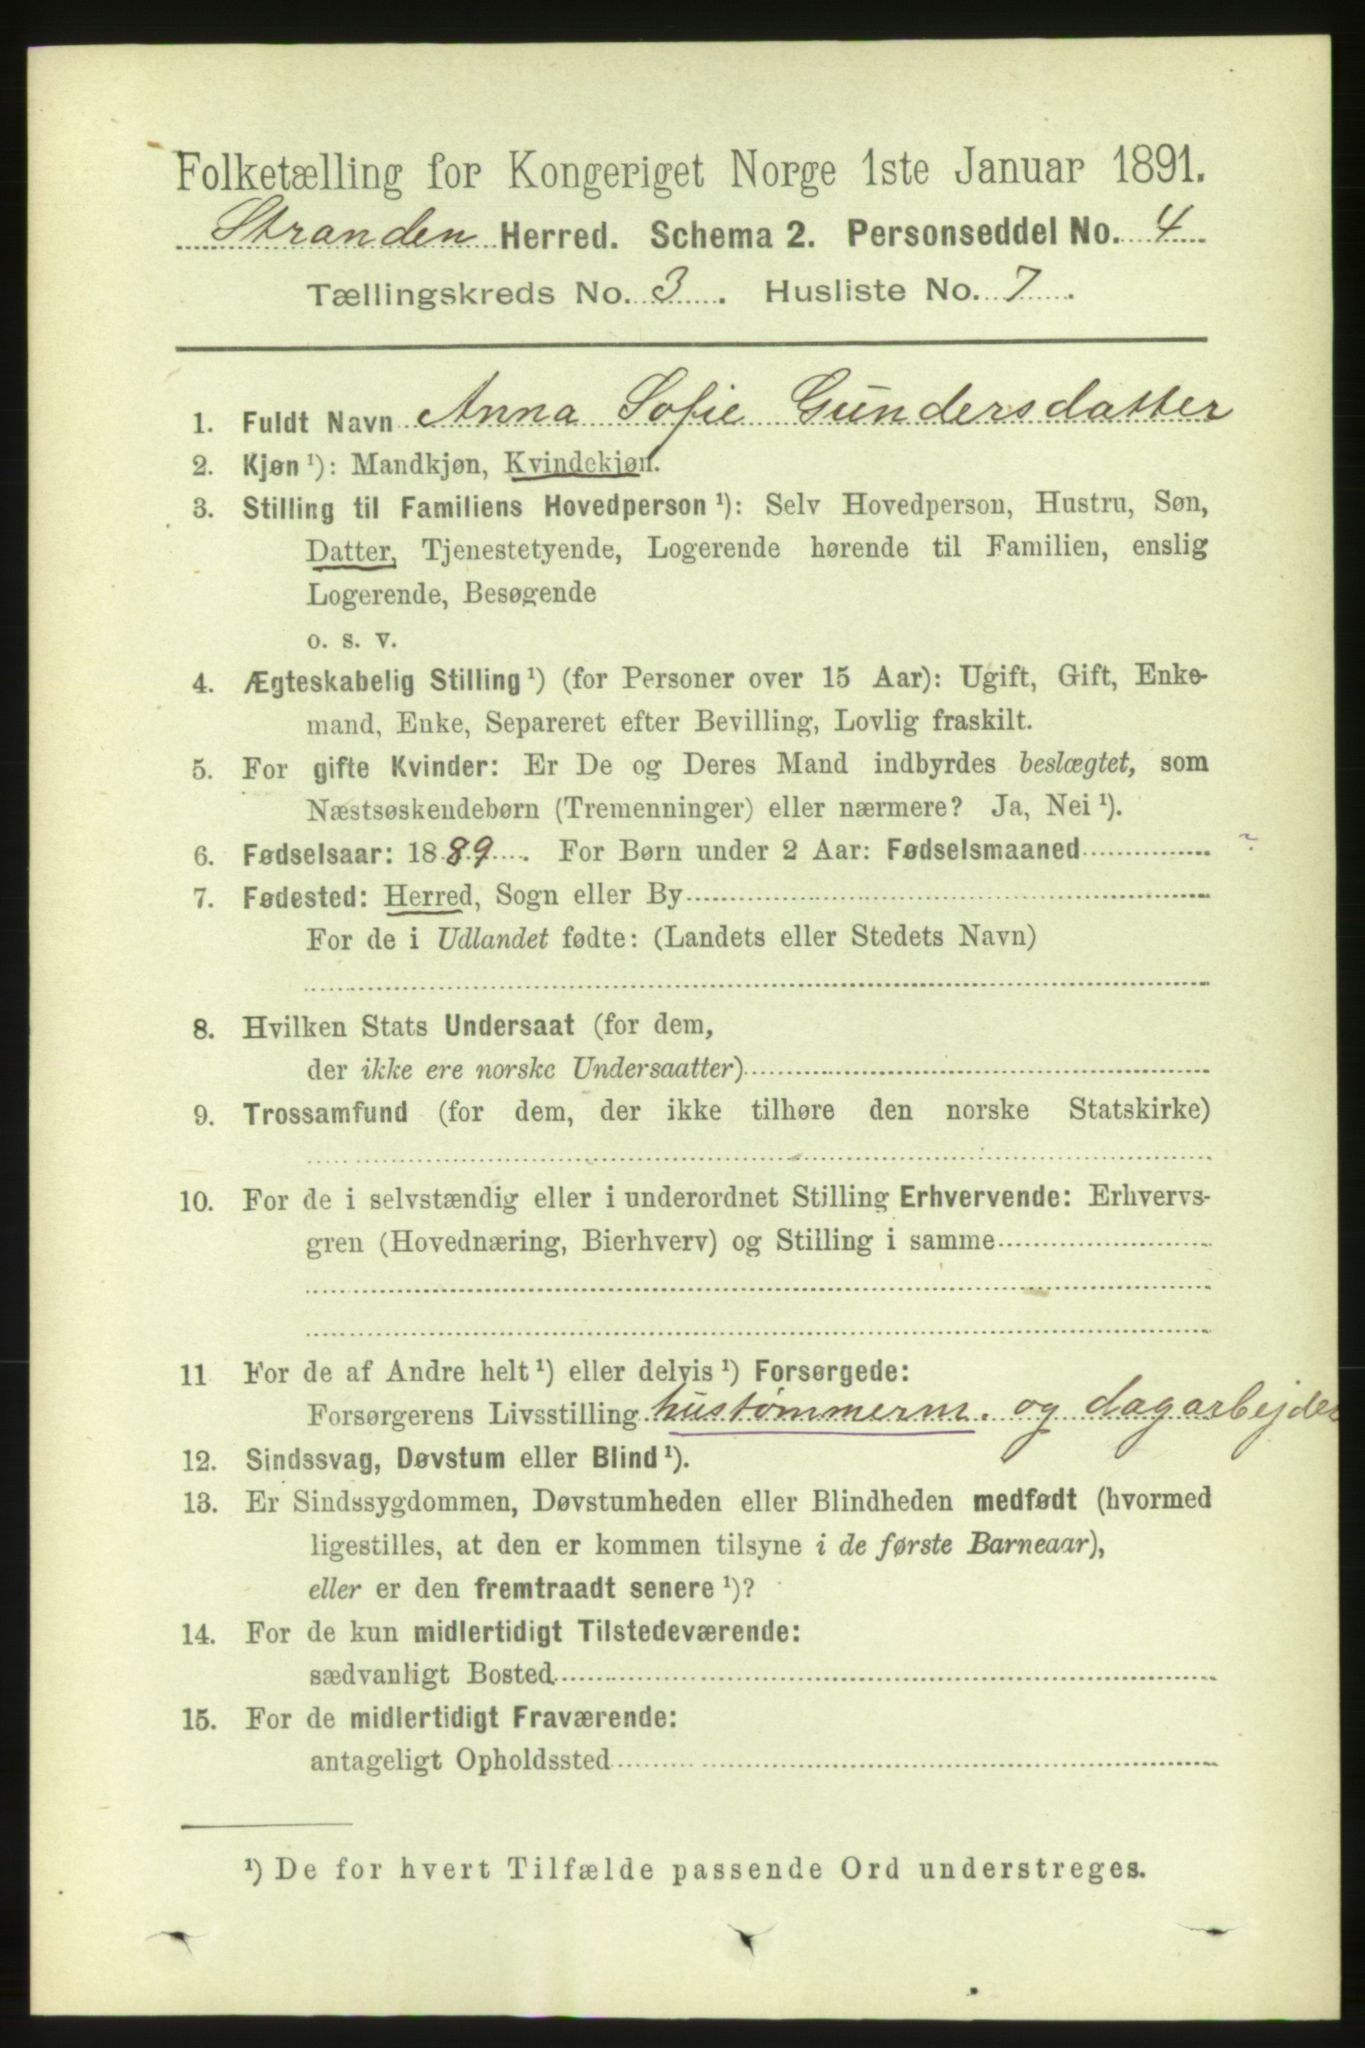 Folketælling for Kongeriget Norge 1ste Januar 1891.
Stranden Herred. Schema 2. Personseddel No. 4
Tællingskreds No. 3. Husliste No. 7.
1. Fuldt Navn Anna Sofie Gundersdatter
2. Kjøn ¹): Mandkjøn, Kvindekjøn.
3. Stilling til Familiens Hovedperson ¹): Selv Hovedperson, Hustru, Søn,
Datter, Tjenestetyende, Logerende hørende til Familien, enslig
Logerende, Besøgende
o. s. v.
4. Ægteskabelig Stilling ¹) (for Personer over 15 Aar): Ugift, Gift, Enke-
mand, Enke, Separeret efter Bevilling, Lovlig fraskilt.
5. For gifte Kvinder: Er De og Deres Mand indbyrdes beslægtet, som
Næstsøskendebørn (Tremenninger) eller nærmere? Ja, Nei ¹).
6. Fødselsaar: 1889. For Børn under 2 Aar: Fødselsmaaned
7. Fødested: Herred, Sogn eller By
For de i Udlandet fødte: (Landets eller Stedets Navn)
8. Hvilken Stats Undersaat (for dem,
der ikke ere norske Undersaatter)
9. Trossamfund (for dem, der ikke tilhøre den norske Statskirke)
10. For de i selvstændig eller i underordnet Stilling Erhvervende: Erhvervs-
gren (Hovednæring, Bierhverv) og Stilling i samme
11 For de af Andre helt ¹) eller delvis ¹) Forsørgede:
Forsørgerens Livsstilling hustømmerm. og dagarbejder
12. Sindssvag, Døvstum eller Blind ¹).
13. Er Sindssygdommen, Døvstumheden eller Blindheden medfødt (hvormed
ligestilles, at den er kommen tilsyne i de første Barneaar),
eller er den fremtraadt senere ¹)?
14. For de kun midlertidigt Tilstedeværende:
sædvanligt Bosted
15. For de midlertidigt Fraværende:
antageligt Opholdssted
¹) De for hvert Tilfælde passende Ord understreges.